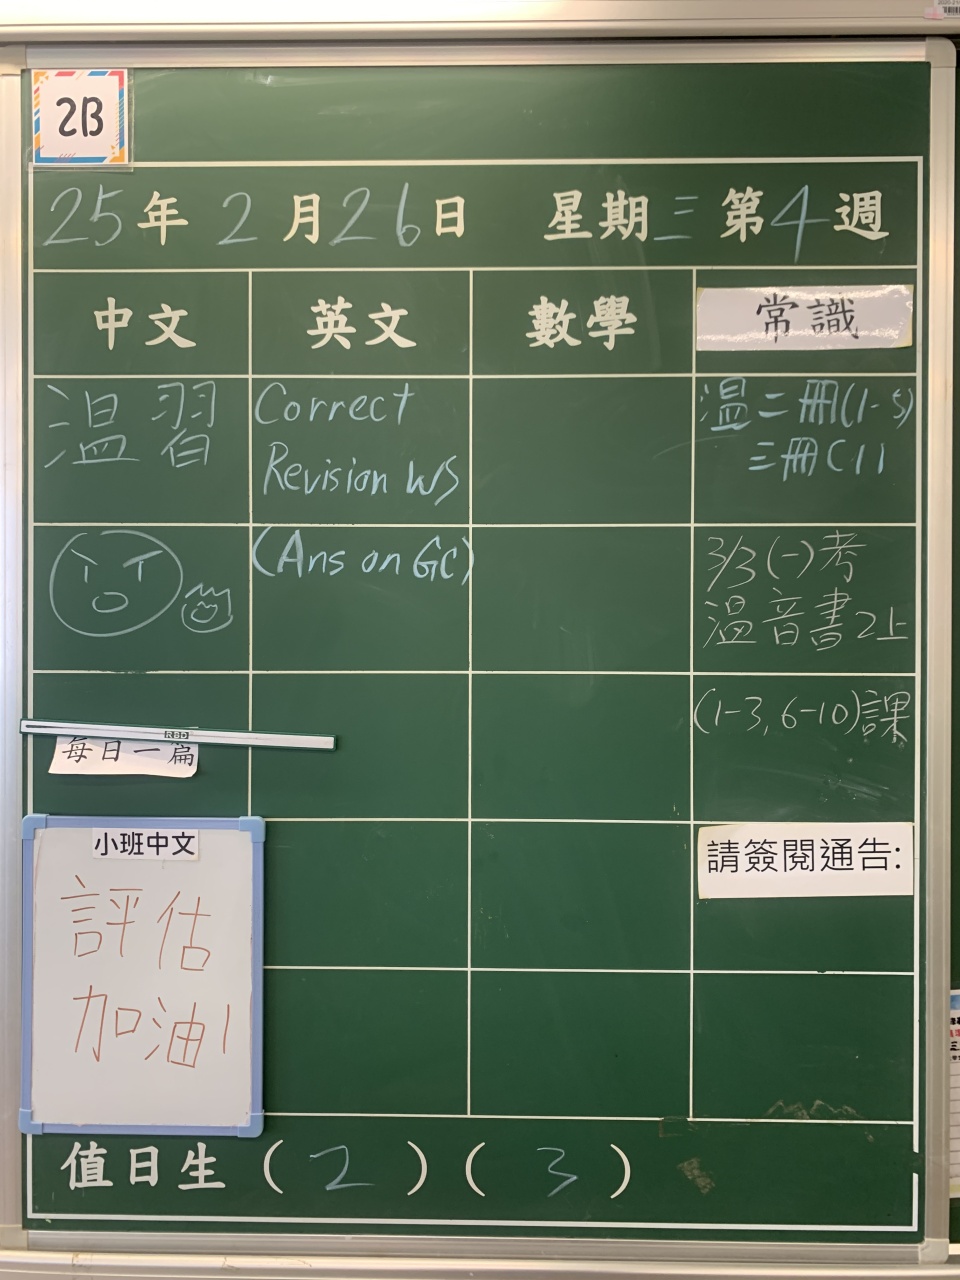 2B
25年2月26日 星期三第4週
中文 英文 數學 常識
溫習
Correct
Revision WS
(Ans on GC)
溫二冊(1-5)
三冊(1)
3/3(一)考
溫音書2上
(1-3,6-10)課
RBD
每日一篇
小班中文
評估
加油!
請簽閱通告:
值日生(2)(3)